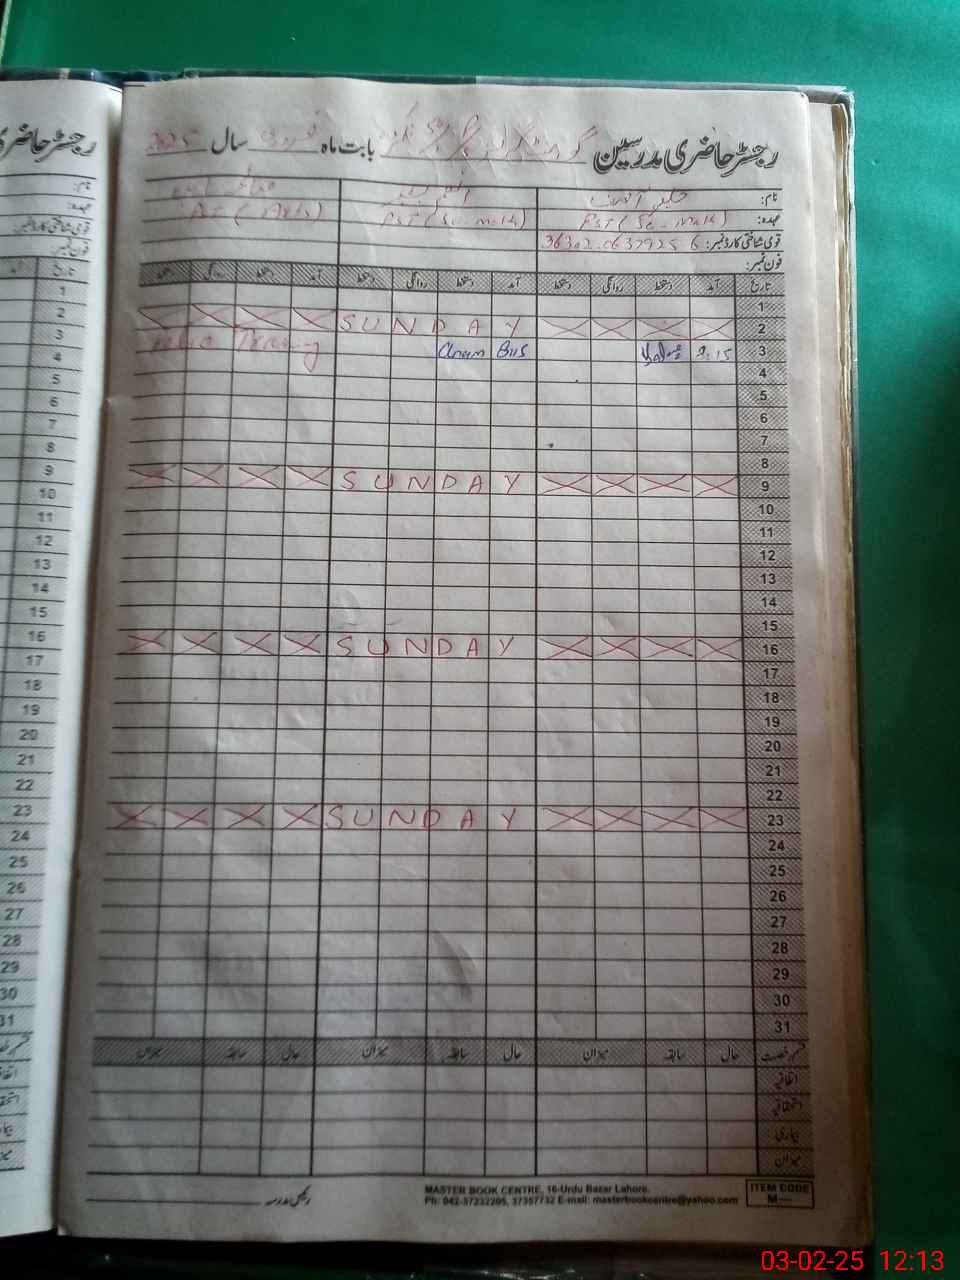 رجسٹر حاضری مدرسین گورنمنٹ گرلز بابت ماہ فروری سال 2025
نام:
عہدہ: PST (Sc-Math) PST (Sc-Math) PST (Arts)
قومی شناختی کارڈ نمبر: 36302-0637925 6
فون نمبر:
تاریخ آمد دستخط روانگی دستخط آمد دستخط روانگی دستخط آمد دستخط روانگی دستخط
1
2 SUNDAY
3 8:15 Anam Training
4
5
6
7
8
9 SUNDAY
10
11
12
13
14
15
16 SUNDAY
17
18
19
20
21
22
23 SUNDAY
24
25
26
27
28
29
30
31
قسم رخصت حال سابقہ میزان حال سابقہ میزان حال سابقہ میزان
اتفاقیہ
استحقاقیہ
بیماری
میزان
رئیس مدرسہ
MASTER BOOK CENTRE, 16-Urdu Bazar Lahore.
Ph: 042-37232205, 37357732 E-mail: masterbookcentre@yahoo.com
ITEM CODE
M—
رجسٹر حاضری
نام:
عہدہ:
قومی شناختی کارڈ نمبر:
فون نمبر:
تاریخ
1
2
3
4
5
6
7
8
9
10
11
12
13
14
15
16
17
18
19
20
21
22
23
24
25
26
27
28
29
30
31
03-02-25 12:13